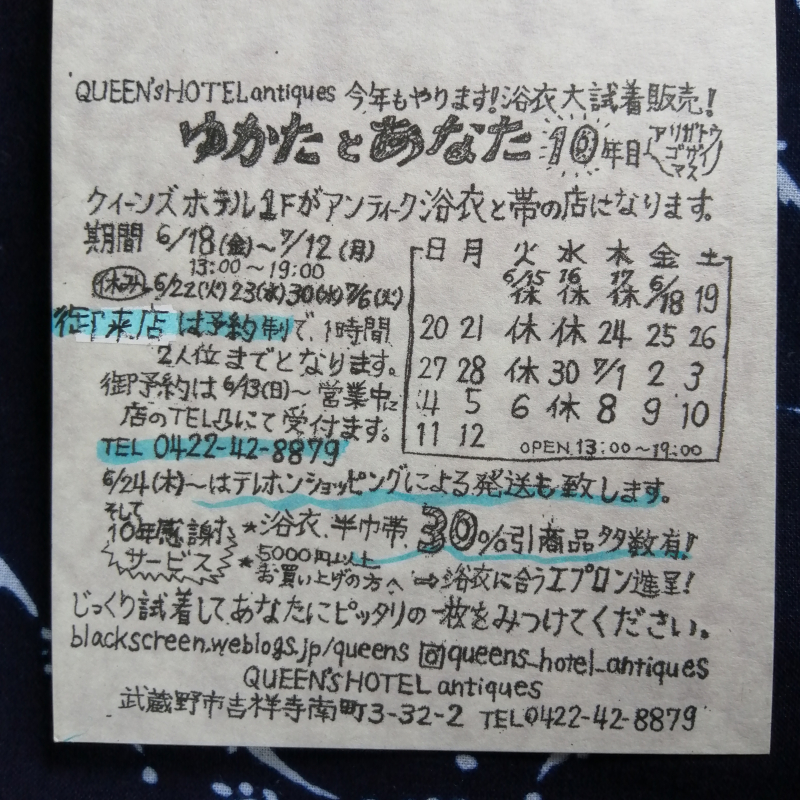 QUEEN'sHOTELantiques 今年もやります!浴衣大試着販売!
ゆかたとあなた 10年目 アリガトウゴザイマス
クィーンズホテル1Fがアンティーク浴衣と帯の店になります。
期間 6/18(金)~7/12(月)
13:00~19:00
休み 6/22(火)23(水)30(水)7/6(火)
御来店は予約制で、1時間
2人位までとなります。
御予約は6/13(日)~営業中に
店のTEL
にて受付ます。
TEL 0422-42-8879
日 月 火 水 木 金 土
6/15休 16休 17休 6/18 19
20 21 休 休 24 25 26
27 28 休 30 7/1 2 3
4 5 6 休 8 9 10
11 12
OPEN 13:00~19:00
6/24(木)~はテレホンショッピングによる発送も致します。
そして
10年感謝
サービス
★浴衣、半巾帯 30%引商品多数有!
★5000円以上
お買い上げの方へ⇒浴衣に合うエプロン進呈!
じっくり試着してあなたにピッタリの一枚をみつけてください。
blackscreen.weblogs.jp/queens queens_hotel_antiques
QUEEN'SHOTEL antiques
武蔵野市吉祥寺南町3-32-2 TEL0422-42-8879